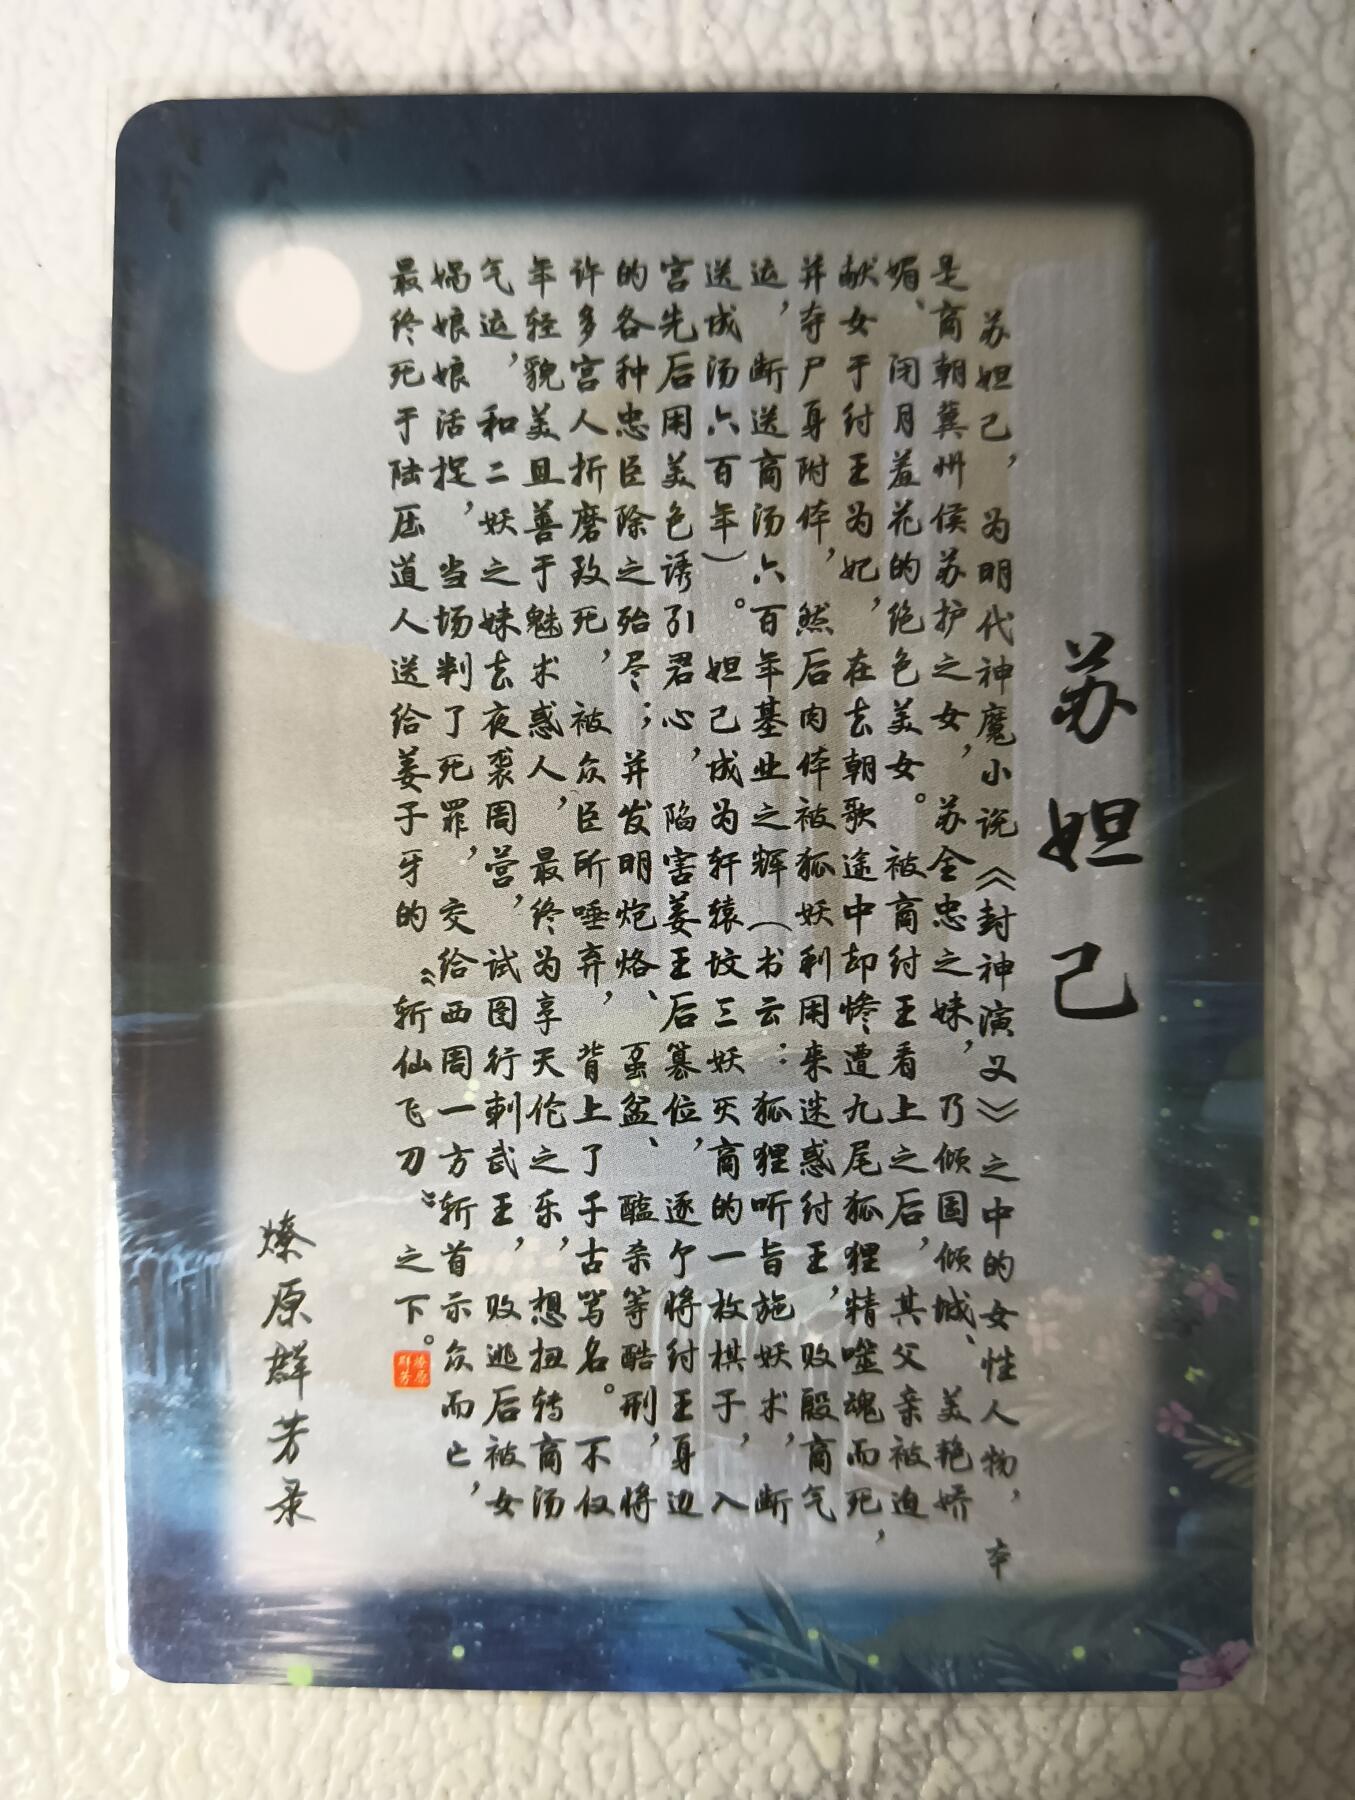 苏妲己
苏妲己，为明代神魔小说《封神演义》之中的女性人物，本
是商朝冀州侯苏护之女，苏全忠之妹，乃倾国倾城、美艳娇
媚、闭月羞花的绝色美女。被商纣王看上之后，其父亲被迫
献女于纣王为妃，在去朝歌途中却惨遭九尾狐狸精噬魂而死，
并夺尸身附体，然后肉体被狐妖利用来迷惑纣王，败殷商气
运，断送商汤六百年基业之辉（书云：狐狸听旨施妖术，断
送成汤六百年）。妲己成为轩辕坟三妖灭商的一枚棋子，入
宫先后用美色诱引君心，陷害姜王后篡位，逐个将纣王身边
的各种忠臣除之殆尽；并发明炮烙、虿盆、醢杀等酷刑，将
许多宫人折磨致死，被众臣所唾弃，背上了千古骂名。不仅
年轻貌美且善于魅术惑人，最终为享天伦之乐，想扭转商汤
气运，和二妖之妹去夜袭周营，试图行刺武王，败逃后被女
娲娘娘活捉，当场判了死罪，交给西周一方斩首示众而亡，
最终死于陆压道人送给姜子牙的“斩仙飞刀”之下。
燎原群芳
燎原群芳录